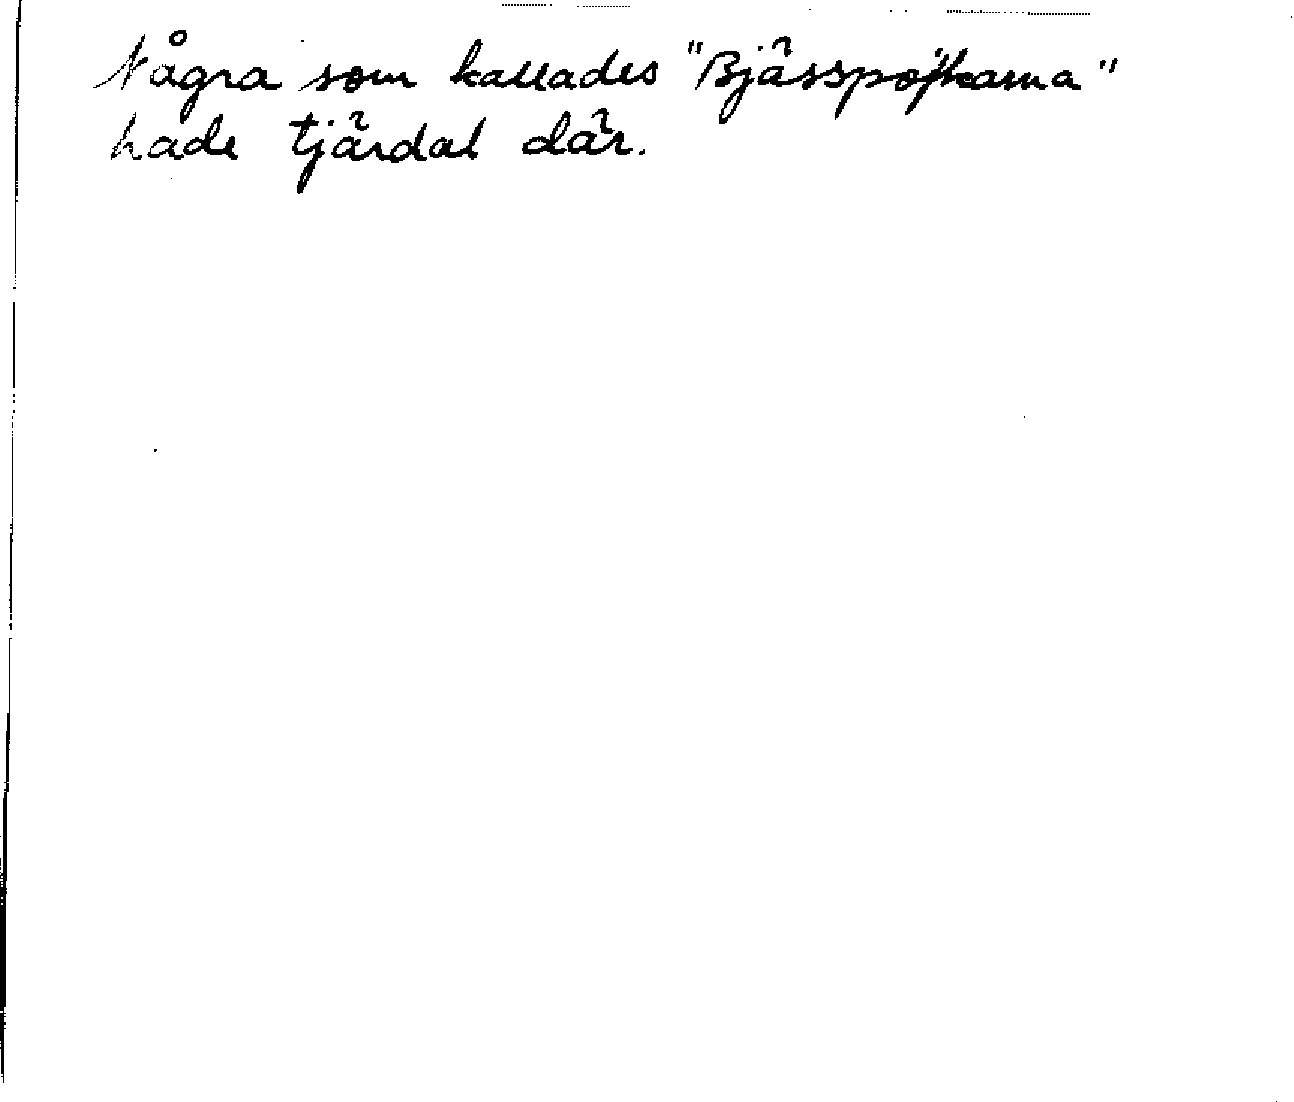 Några som kallades "Bjässpojkarna"
hade tjärdal där.